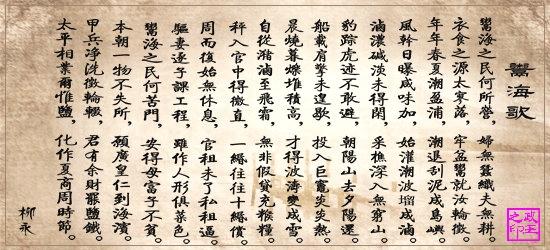 鬻海歌
鬻海之民何所營，婦無蠶織夫無耕。
衣食之源太寥落，牢盆鬻就汝輸徵。
年年春夏潮盈浦，潮退刮泥成島嶼。
風幹日曝咸味加，始灌潮波塯成滷。
滷濃碱淡未得閑，采樵深入無窮山。
豹踪虎迹不敢避，朝陽山去夕陽還。
船載肩擎未遑歇，投入巨竈炎炎熱。
晨燒暮爍堆積高，才得波濤變成雪。
自從潴滷至飛霜，無非假貸充餱糧。
秤入官中得微直，一緡往往十緡償。
周而復始無休息，官租未了私租逼。
驅妻逐子課工程，雖作人形俱菜色。
鬻海之民何苦門，安得母富子不貧。
本朝一物不失所，願廣皇仁到海濱。
甲兵净洗徵輪輟，君有余財罷鹽鐵。
太平相業爾惟鹽，化作夏商周時節。
柳永
政王之印